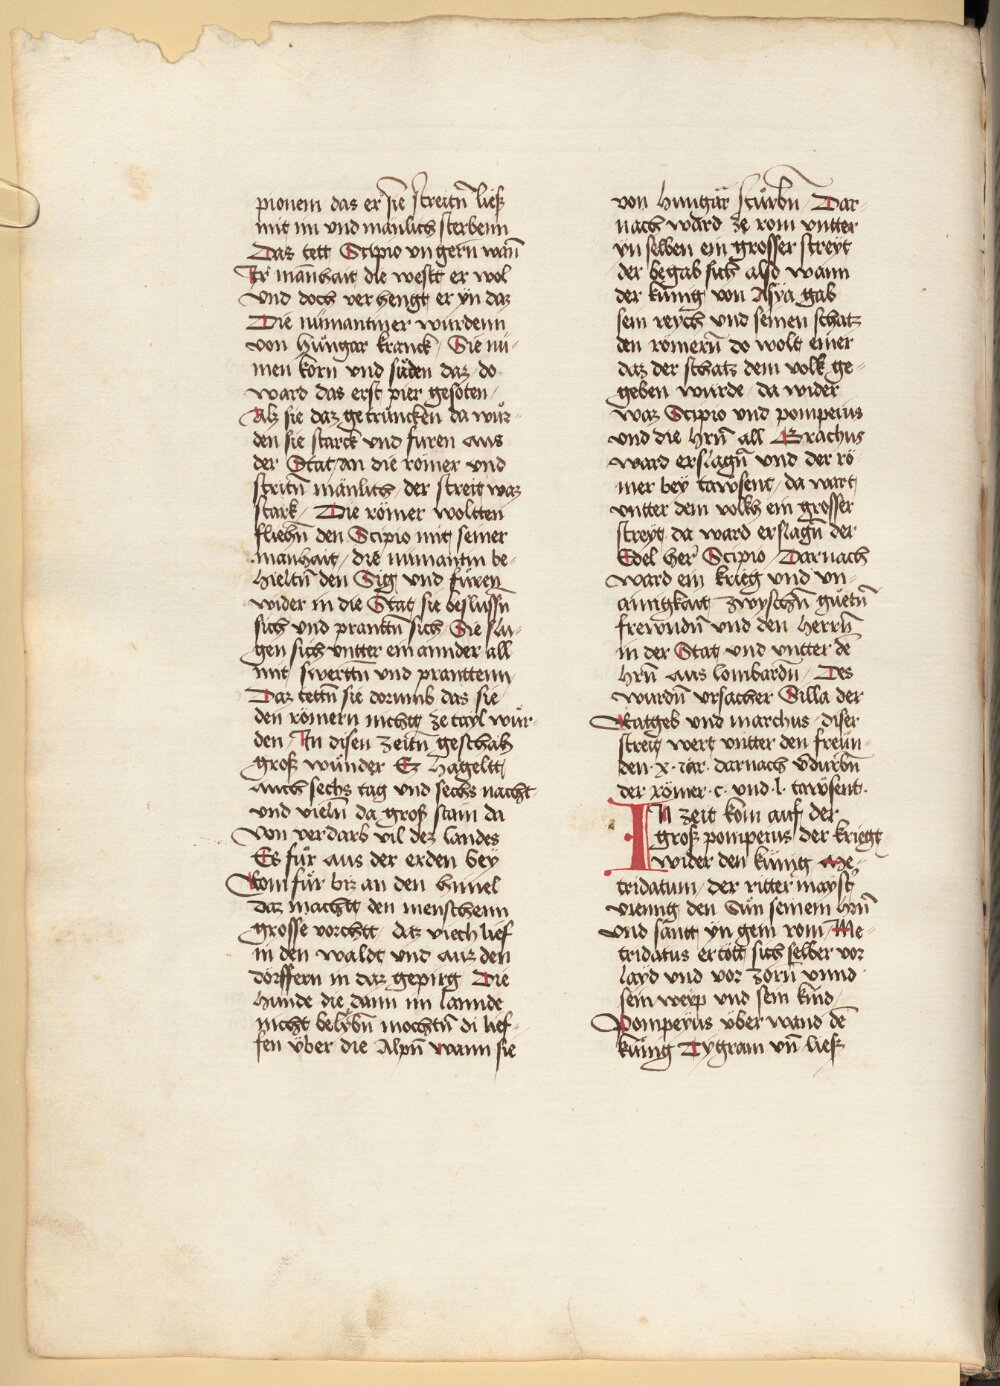 pionem das er sie streitn̄ liess
mit im und mänlich sterbenn
Das tett Scipio ungern wan̄
Ir manhait die westt er wol
und doch verhengt er yn daz
Die numantiner wurdenn
von Hungar kranck / Sie nu-
men korn und suden daz / do
ward das erst pier gesoten /
Alz sie daz getruncken da wur-
den sie starck und furen aus
der Stat / an die römer und
stritn̄ mänlich / der streit waz
stark / Die römer woltten
fliehn̄ den Scipio mit seiner
manhait / die numantin be-
hieltn̄ den Sig und füren
wider in die Stat sie beslussn̄
sich und prantn̄ sich / Sie slu-
gen sich untter ein annder all
mit swerttn̄ und pranttenn
Daz tettn̄ sie dorumb das sie
den römern nichtt ze tayl wur-
den / In disen zeitn̄ geschah
groß wunder Ez Hageltt
auch sechs tag und sechs nacht
und vieln̄ da groß stain da
von verdarb vil dez landes
Es fur aus der erden bey
Rom für biz an den himel
Daz machtt den menschenn
grosse vorchtt / daz viech lief
in den waldt und auz den
dörffern in daz gepirg Die
Hunde die dann im lannde
nicht belybn̄ mochtn̄ di lief-
fen über die Alpn̄ wann sie
von Hungär stürbn̄ / Dar-
nach ward ze rom untter
yn selben ein grosser streyt
der begab sich also wann
der kunig von Asya gab
sein reych und seinen schatz
den römern̄ do wolt einer
daz der schatz dem volk ge-
geben wurde / da wider
waz Scipio und pompeius
und die hrn̄ all Grachus
ward erslagn̄ und der rö-
mer bey tawsent / da wart
untter dem volkh ein grosser
streyt da ward erslagn̄ der
Edel her Scipio / Darnach
ward ein krieg und un-
ainigkait zwyschn̄ guetn̄
frewndn̄ und den herrn̄
in der Stat und untter dē
hrn̄ aus lombardn̄ / Des
wurdn̄ ursacher Silla der
Ratgeb und marchus / diser
streit wert untter den freün-
den · x · iar · darnach v̄durbn̄
der römer · c · und · l · tawsent ·
In zeit kom auf der
groß pompeius / der kriegt
wider den künig Me-
tridatum / der ritter mayst̄
vienng den Sun seinem hrn̄
und sant yn gein rom / Me-
tridatus ertött sich selber vor
layd und vor zorn̄ unnd
sein weyp und sein kind /
Pompeyus über wand dē
künig Tygram un̄ liess